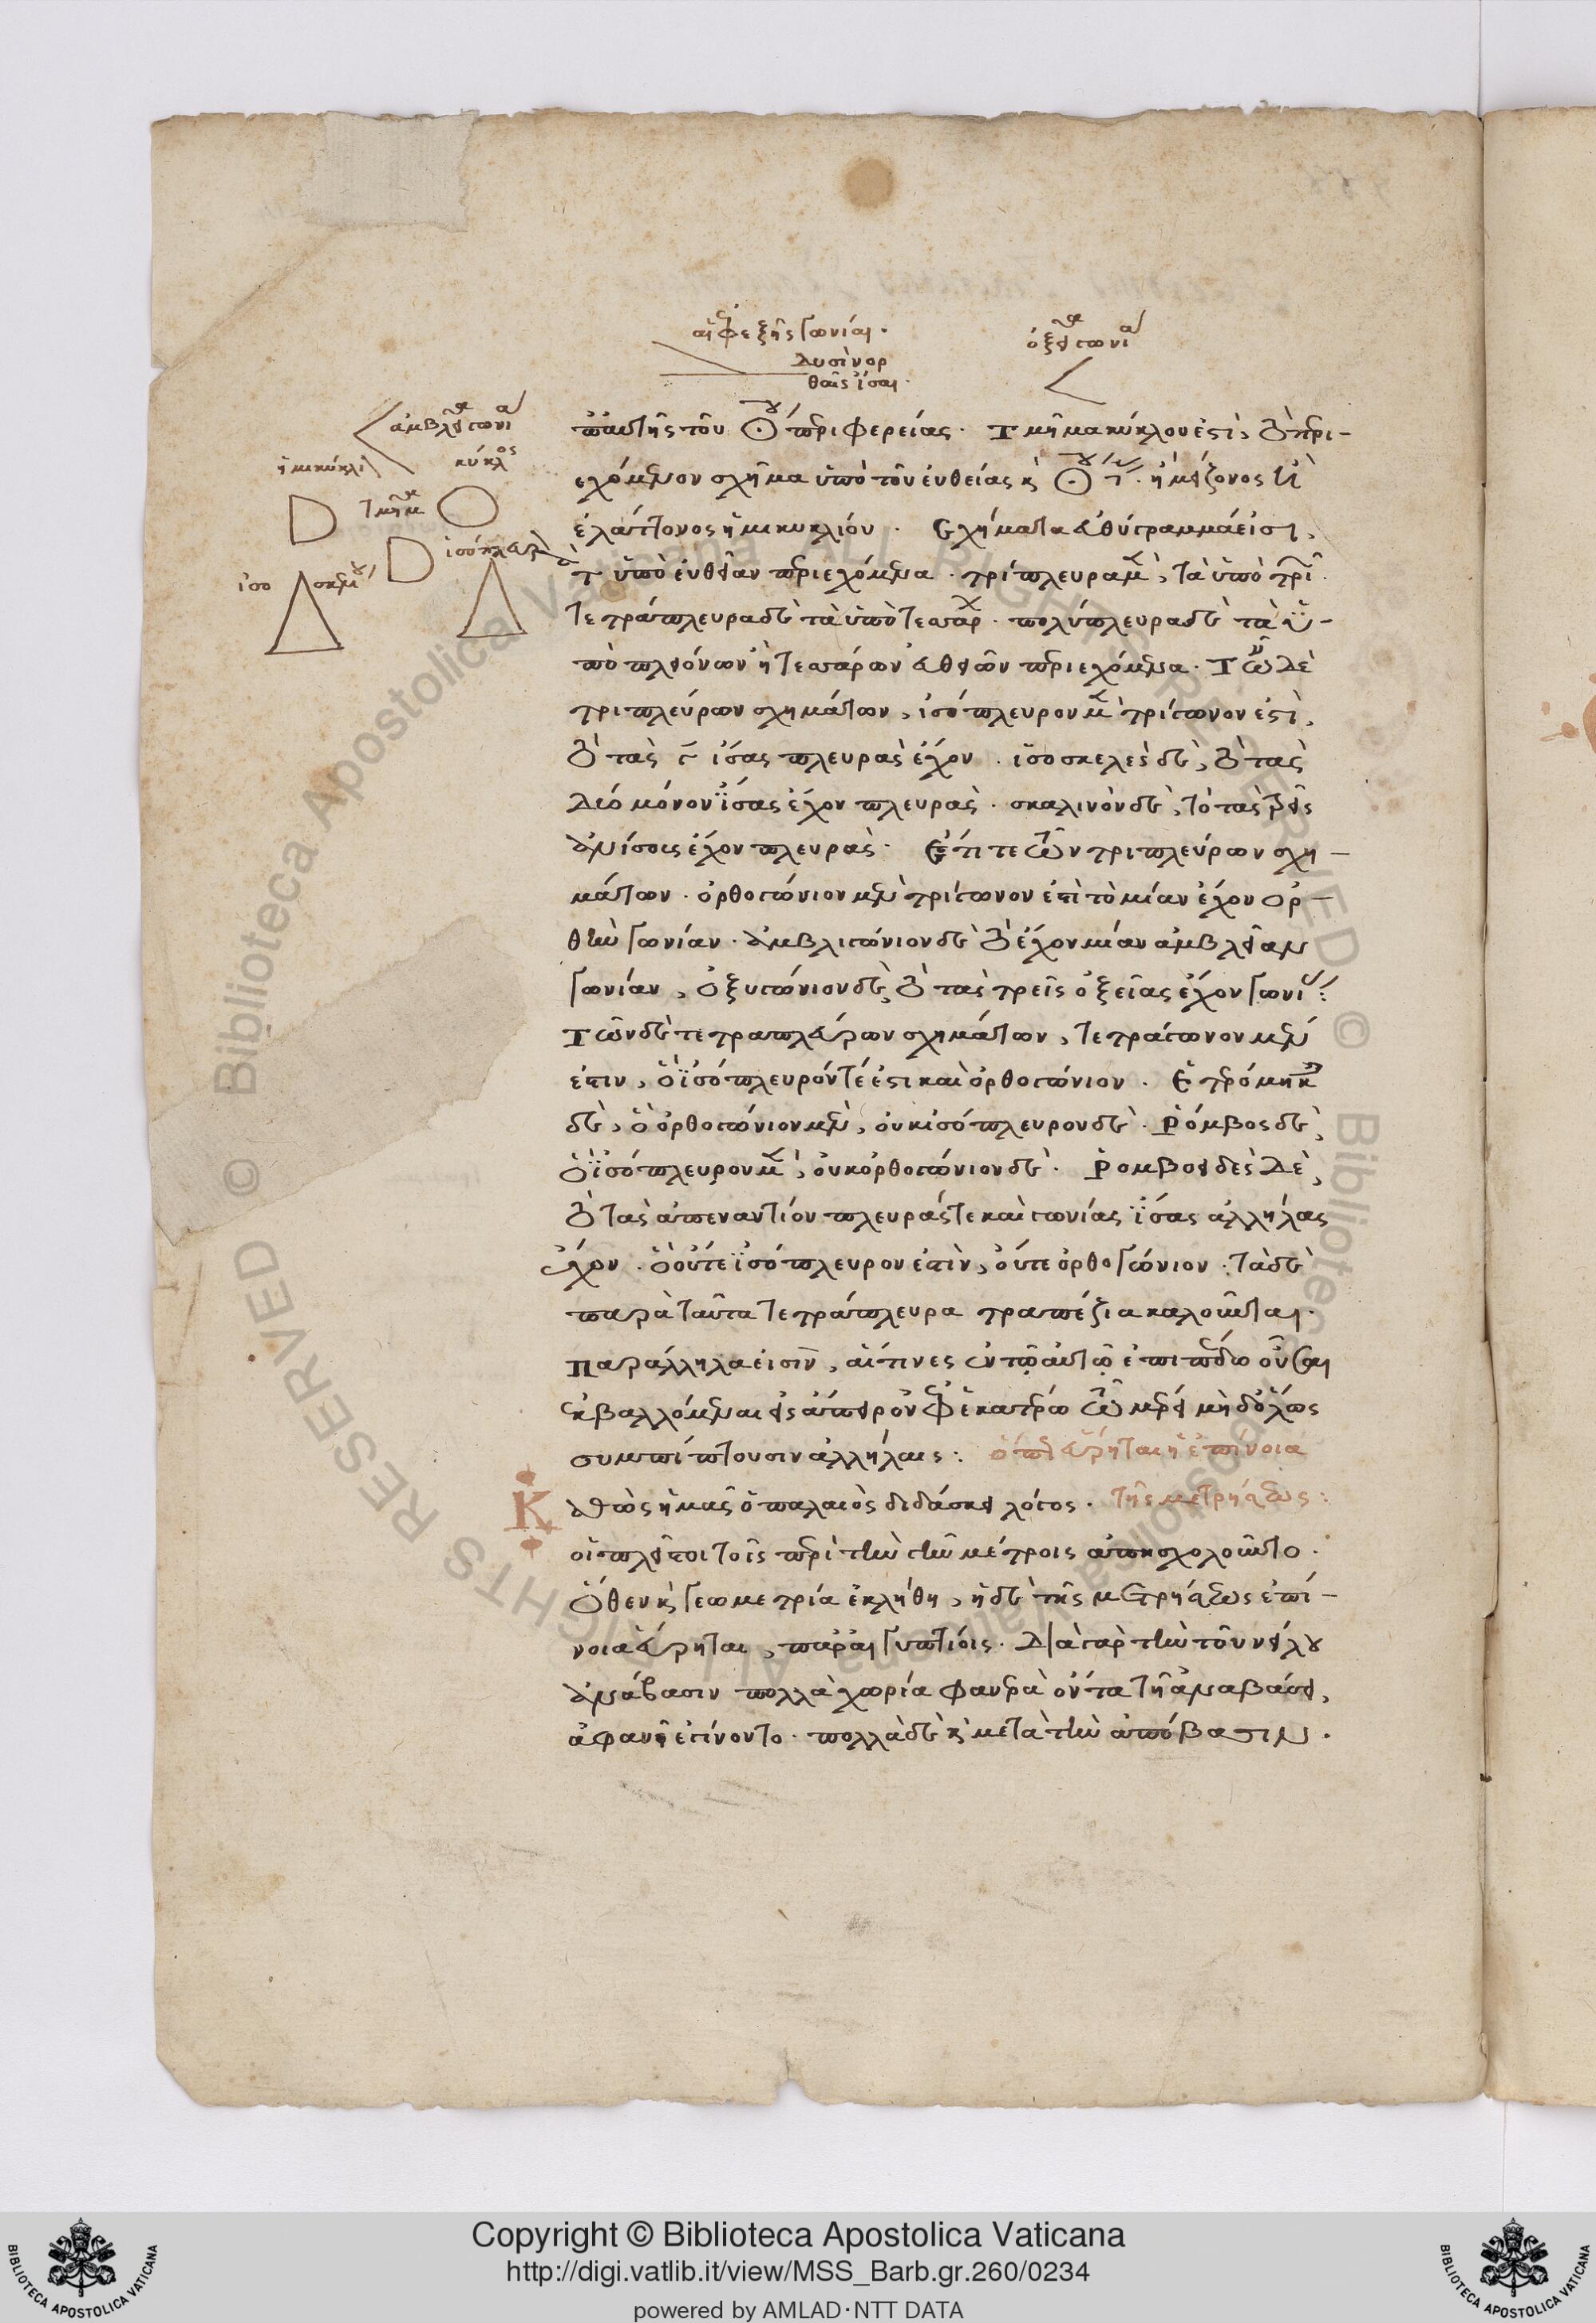 αἱ ἐφεξῆς γωνίαι·
δυσὶν ὀρ
θαῖς ἴσαι·
ὀξεῖα γωνία
ἀμβλεῖα γωνία
ἡμικύκλι
κύκλος
τμῆμα
ἰσόπλευρ
ἰσο σκελ
ὑπ' αὐτῆς τοῦ ☉ου περιφερείας· Τμῆμα κύκλου ἐστὶ, τὸ περι-
εχόμενον σχῆμα ὑπὸ τοῦ εὐθείας κ ☉ου · ἡ μείζονος ἢ
ἐλάττονος ἡμικυκλίου · Σχήματα εὐθύγραμμά εἰσι,
τὰ ὑπὸ εὐθειῶν περιεχόμενα · τρίπλευρα μὲν, τὰ ὑπὸ τριῶν·
τετράπλευρα δὲ τὰ ὑπὸ τεσσάρ · πολύπλευρα δὲ τὰ ὑ-
πὸ πλειόνων ἢ τεσσάρων εὐθειῶν περιεχόμενα · Τῶν δὲ
τριπλεύρων σχημάτων, ἰσόπλευρον μὲν τρίγωνον ἐστὶ,
τὸ τὰς γ ἴσας πλευρὰς ἔχον · ἰσοσκελὲς δὲ, τὸ τὰς
δύο μόνον ἴσας ἔχον πλευράς · σκαλινὸν δὲ, τὸ τὰς τρεῖς
ἀνίσοις ἔχον πλευράς · Ἔτι τε τῶν τριπλεύρων σχη-
μάτων · ὀρθογώνιον μὲν τρίγωνον ἐστὶ τὸ μίαν ἔχον ὀρ-
θὴν γωνίαν · ἀμβλιγώνιον δὲ τὸ ἔχον μίαν ἀμβλεῖαν
γωνίαν, ὀξυγώνιον δὲ, τὸ τὰς τρεῖς ὀξείας ἔχον γωνί :
Τῶν δὲ τετραπλεύρων σχημάτων, τετράγωνον μέν
ἐστιν, ὃ ἰσόπλευρόν τέ ἐστι καὶ ὀρθογώνιον · Ἑτερόμηκ
δὲ, ὃ ὀρθογώνιον μὲν, οὐκ ἰσόπλευρον δὲ · Ῥόμβος δὲ,
ὃ ἰσόπλευρον μὲν, οὐκ ὀρθογώνιον δὲ · Ῥομβοειδὲς δὲ,
τὸ τὰς ἀπεναντίον πλευράς τε καὶ γωνίας ἴσας ἀλλήλας
ἔχον · ὃ οὔτε ἰσόπλευρον ἐστὶν, οὔτε ὀρθογώνιον · τὰ δὲ
παρὰ ταῦτα τετράπλευρα τραπέζια καλοῦνται·
Παράλληλα εἰσὶν, αἵτινες ἐν τῷ αὐτῷ ἐπιπέδω οὖσαι
ἐκβαλλόμεναι εἰς ἄπειρον ἐφ ἑκατέρω τῶν μερεί μηδόλως
συμπίπτουσιν ἀλλήλαις : ὅπου εὕρηται ἡ ἐπίνοια
τῆς μετρήσεως :
Καθὼς ἡμᾶς ὁ παλαιὸς διδάσκει λόγος ·
οἱ πλεῖστοι τοῖς περὶ τὴν γῆν μέτροις ἀπησχολοῦντο ·
Ὅθεν κ γεωμετρία ἐκλήθη, ἡ δὲ τῆς μετρήσεως ἐπί-
νοια εὕρηται, παρ' αἰγυπτίοις · Διὰ γὰρ τὴν τοῦ νείλου
ἀνάβασιν πολλὰ χωρία φανερὰ ὄντα τῇ ἀναβάσει,
ἀφανῆ ἐγίνοντο · πολλὰ δὲ κ μετὰ τὴν ἀπόβασιν ·
Copyright © Biblioteca Apostolica Vaticana
http://digi.vatlib.it/view/MSS_Barb.gr.260/0234
powered by AMLAD·NTT DATA
BIBLIOTECA APOSTOLICA VATICANA
BIBLIOTECA APOSTOLICA VATICANA
© Biblioteca Apostolica Vaticana ALL RIGHTS RESERVED © Biblioteca Apostolica Vaticana ALL RIGHTS RESERVED